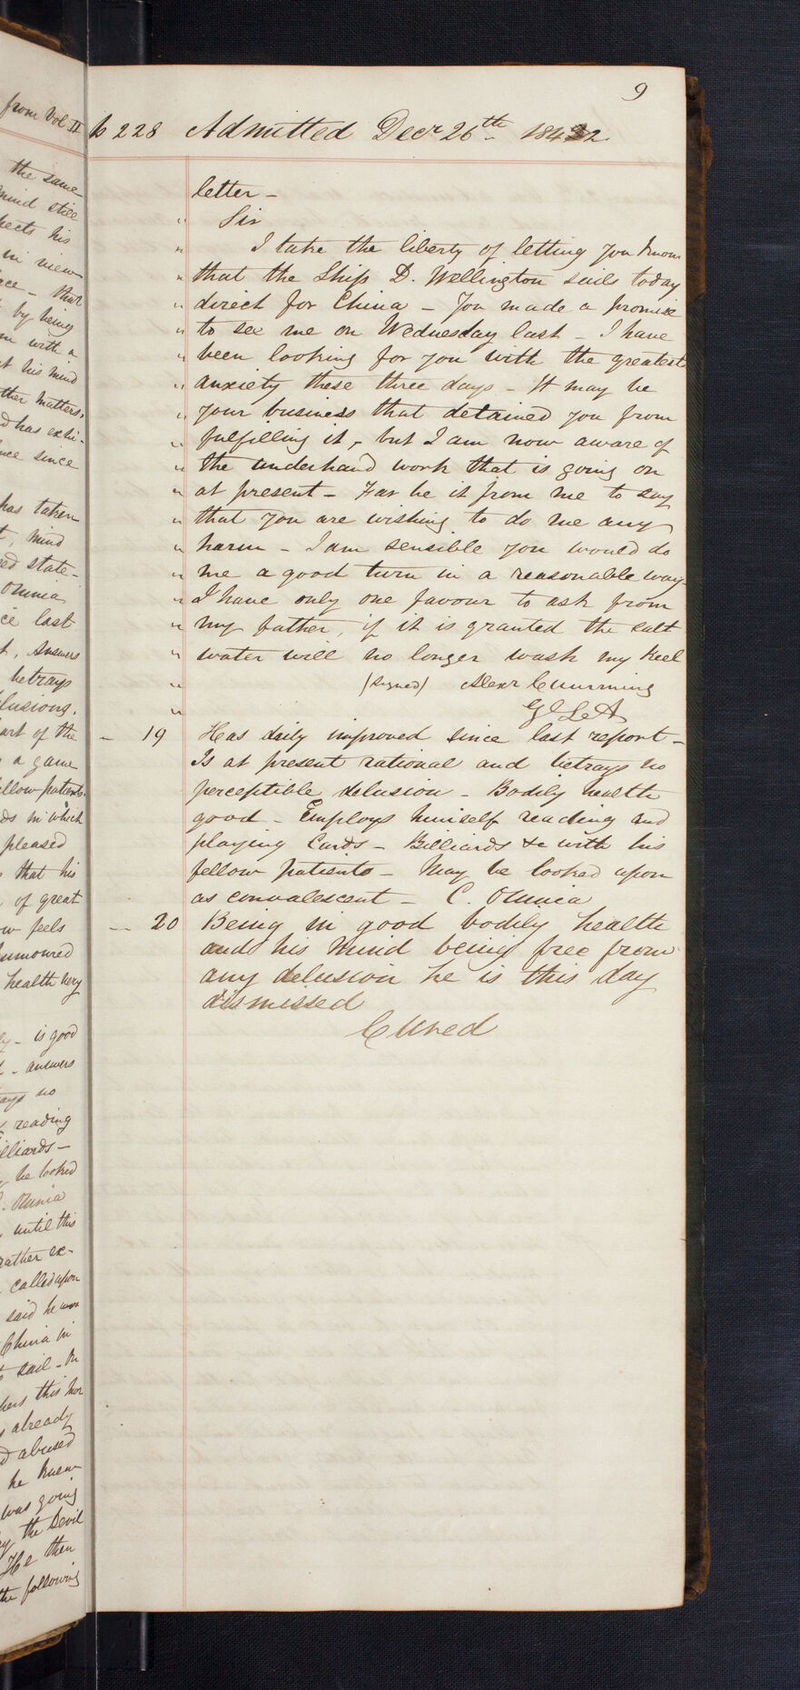 9
228 Admitted Decr 26th 1842
letter -
" Sir
" I take the liberty of letting you know
" that the Ship D. Wellington sails today
" direct for China - You made a promise
" to see me on Wednesday last - I have
" been looking for you with the greatest
" anxiety these three days - It may be
" your business that detained you from
" fulfilling it, - but I am now aware of
" the underhand work that is going on
" at present - Far be it from me to say
" that you are wishing to do me any
" harm - I am sensible you would do
" me a good turn in a reasonable way
" I have only one favour to ask from
" my father, if it is granted the salt
" water will no longer wash my keel
" (signed) Alexr Cumming
"
- 19 Has daily improved since last report -
Is at present rational and betrays no
perceptible delusion - Bodily health
good - Employs himself reading and
playing Cards - Billiards &c with his
fellow patients - May be looked upon
as convalescent - C. Omnia
- 20 Being in good bodily health
and his mind being free from
any delusion he is this day
dismissed
Cured
from Vol II
the same
mind still
his
in view
that
by being
with a
his mind
matters,
has
since
has taken
mind
state-
Omnia
last
Answers
betrays
of the
a game
fellow patients
in which
pleased
that his
of great
feels
health very
is good
- answers
no
reading
be looked
Omnia
until this
rather ex-
called upon
said he was
China in
sail - On
this
already
abused
he knew
was going
the Devil
He then
the following